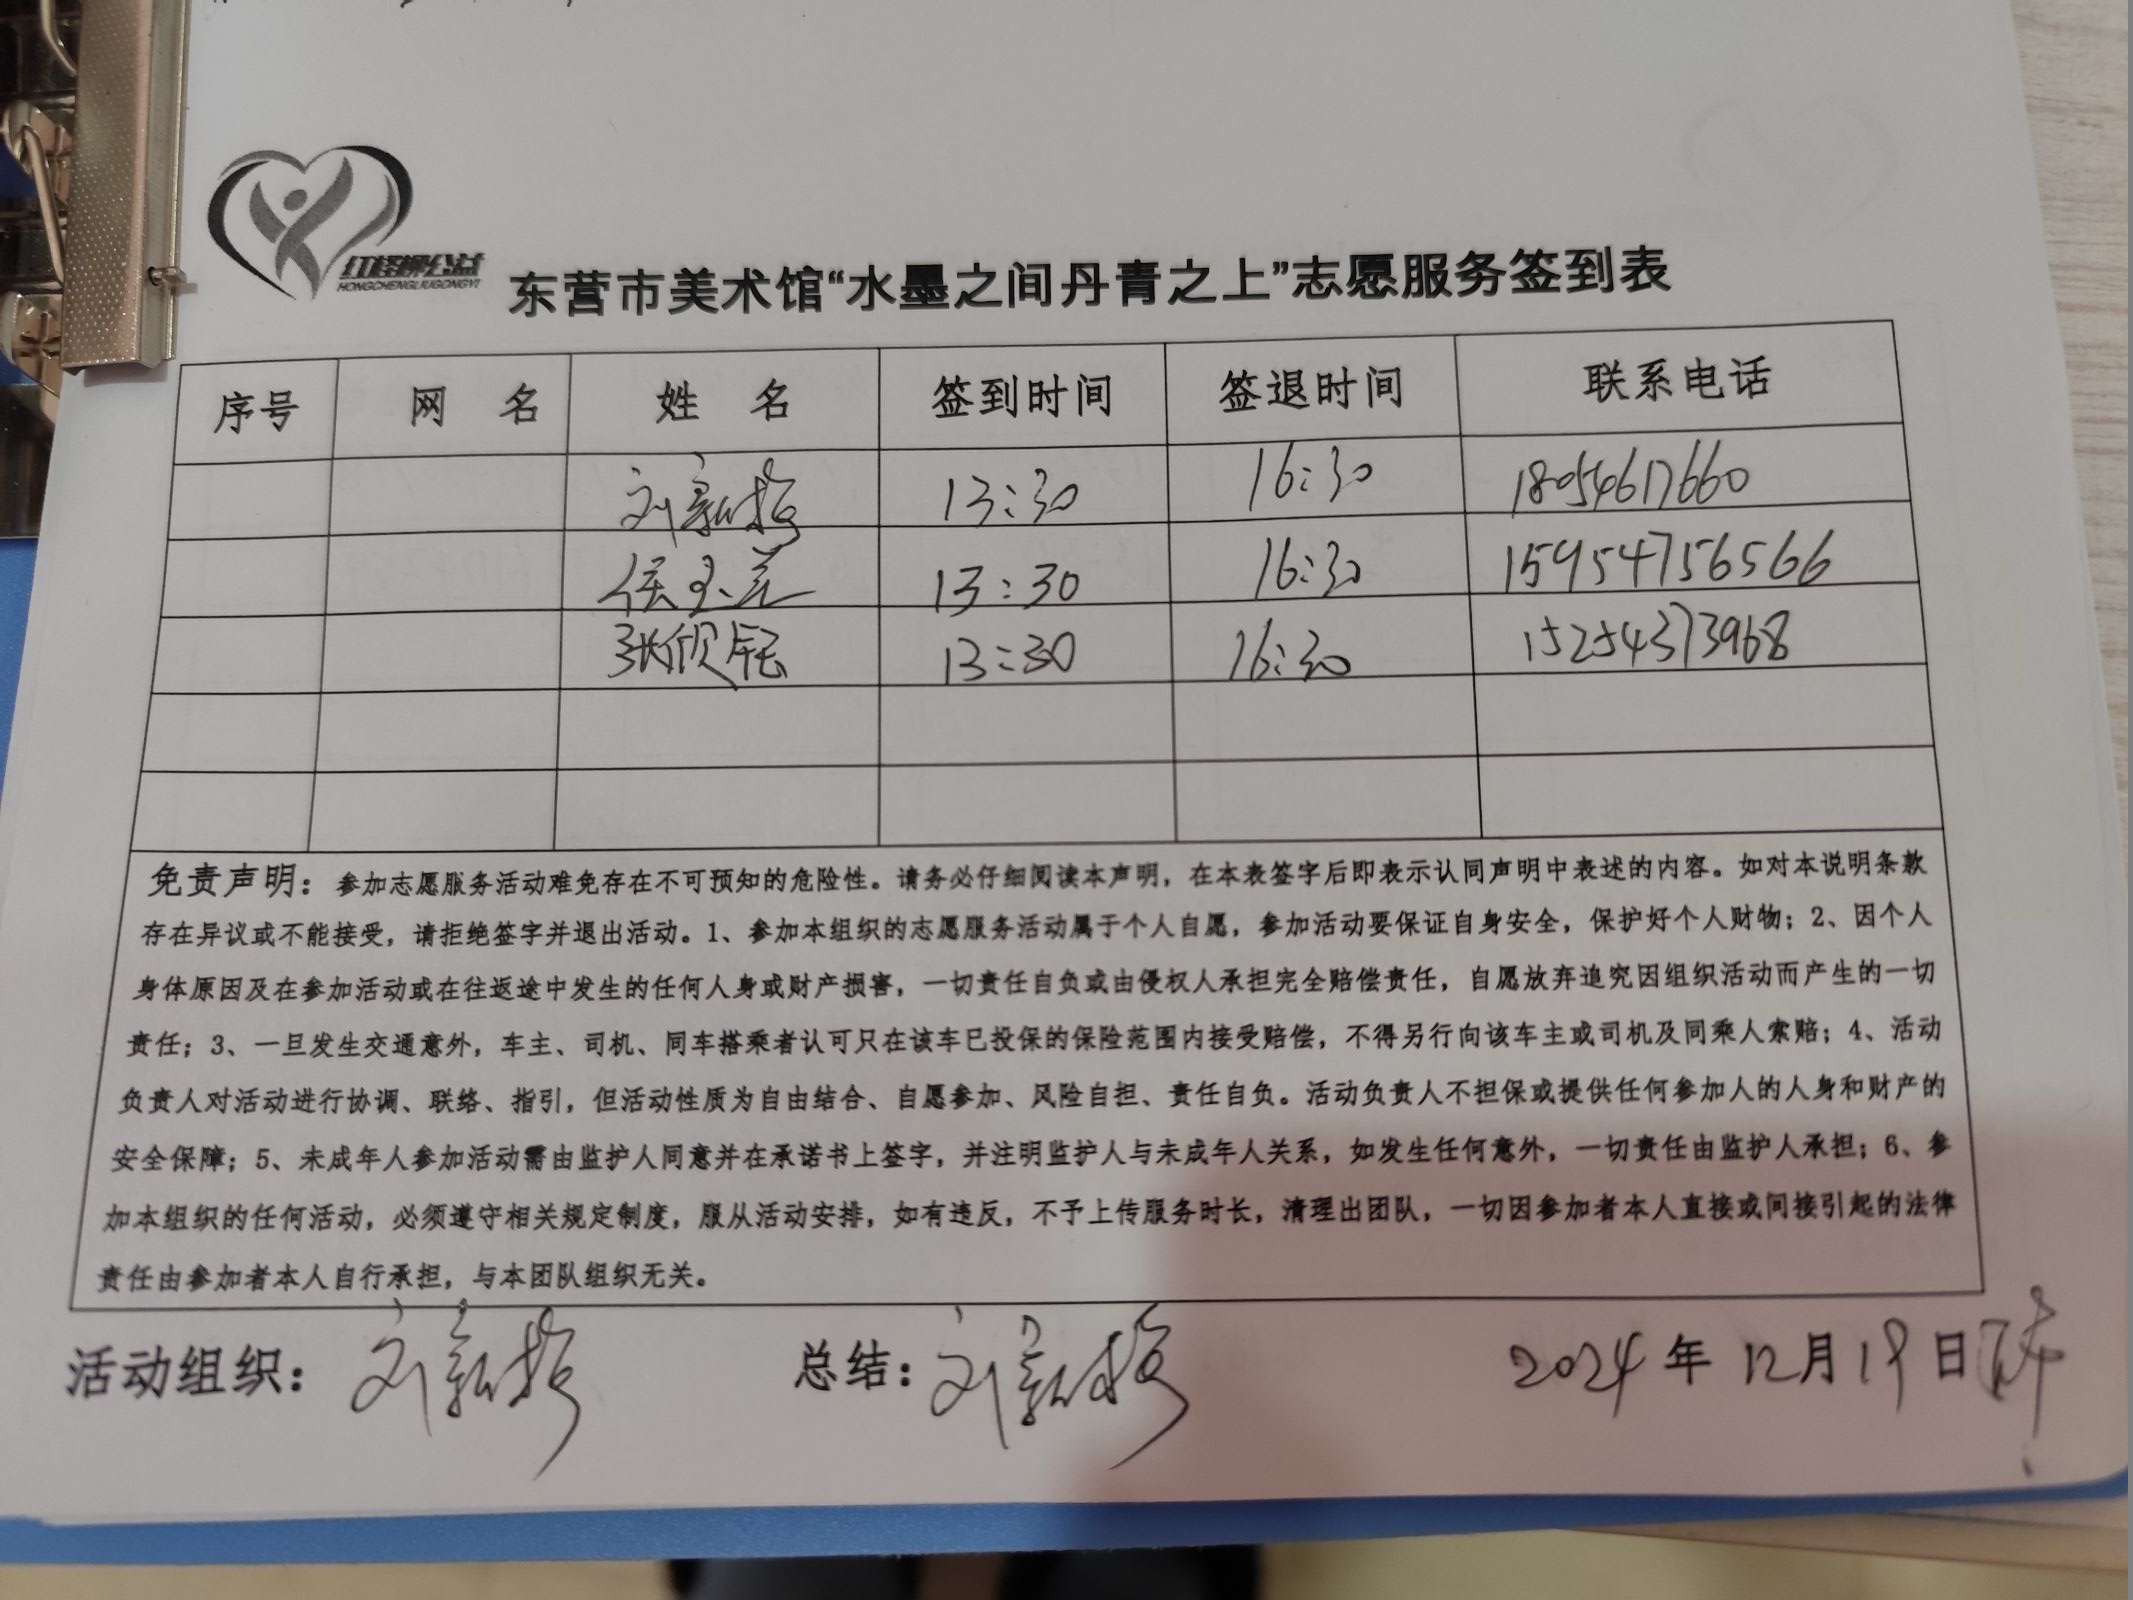 红柽柳公益
HONGCHENGLIUGONGYI
东营市美术馆“水墨之间丹青之上”志愿服务签到表
序号 网 名 姓 名 签到时间 签退时间 联系电话
刘 13:30 16:30 18054617660
侯玉兰 13:30 16:30 15954756566
张欣钰 13:30 16:30 15254373968
免责声明：参加志愿服务活动难免存在不可预知的危险性。请务必仔细阅读本声明，在本表签字后即表示认同声明中表述的内容。如对本说明条款
存在异议或不能接受，请拒绝签字并退出活动。1、参加本组织的志愿服务活动属于个人自愿，参加活动要保证自身安全，保护好个人财物；2、因个人
身体原因及在参加活动或在往返途中发生的任何人身或财产损害，一切责任自负或由侵权人承担完全赔偿责任，自愿放弃追究因组织活动而产生的一切
责任；3、一旦发生交通意外，车主、司机、同车搭乘者认可只在该车已投保的保险范围内接受赔偿，不得另行向该车主或司机及同乘人索赔；4、活动
负责人对活动进行协调、联络、指引，但活动性质为自由结合、自愿参加、风险自担、责任自负。活动负责人不担保或提供任何参加人的人身和财产的
安全保障；5、未成年人参加活动需由监护人同意并在承诺书上签字，并注明监护人与未成年人关系，如发生任何意外，一切责任由监护人承担；6、参
加本组织的任何活动，必须遵守相关规定制度，服从活动安排，如有违反，不予上传服务时长，清理出团队，一切因参加者本人直接或间接引起的法律
责任由参加者本人自行承担，与本团队组织无关。
活动组织：刘 总结：刘 2024年12月19日